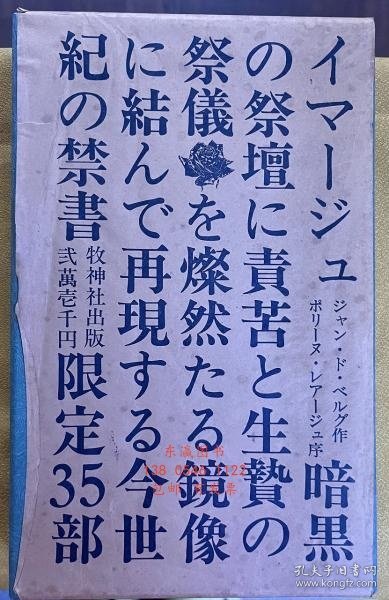 イマージュ
ジャン・ド・ベルグ作
ポリーヌ・レアージュ序
暗黒
の祭壇に責苦と生贄の
祭儀を燦然たる鏡像
に結んで再現する今世
紀の禁書
牧神社出版
弐萬壱千円
限定35部
东瀛图书
包邮
发票
孔夫子旧书网
www.kongfz.com